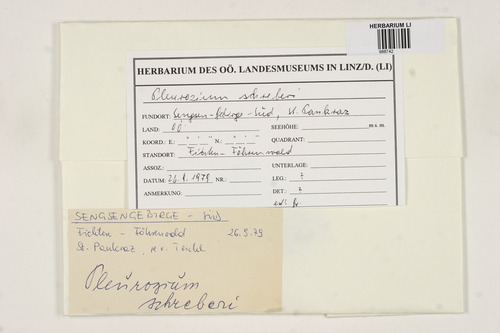 HERBARIUM LI
988742
HERBARIUM DES OÖ. LANDESMUSEUMS IN LINZ/D. (LI)
Pleurozium schreberi
FUNDORT: Sengsen-Gebirge-Süd, St. Pankraz
LAND: OÖ SEEHÖHE: m s. m.
KOORD.: E.: ° ' " N.: ° ' " QUADRANT:
STANDORT: Fichten-Föhrenwald
ASSOZ.: UNTERLAGE:
DATUM: 26.9.1979 NR.: LEG.: ?
ANMERKUNG: DET.: ?
SENGSENGEBIRGE - Süd
Fichten - Föhrenwald 26.9.79
St. Pankraz,
Pleurozium
schreberi